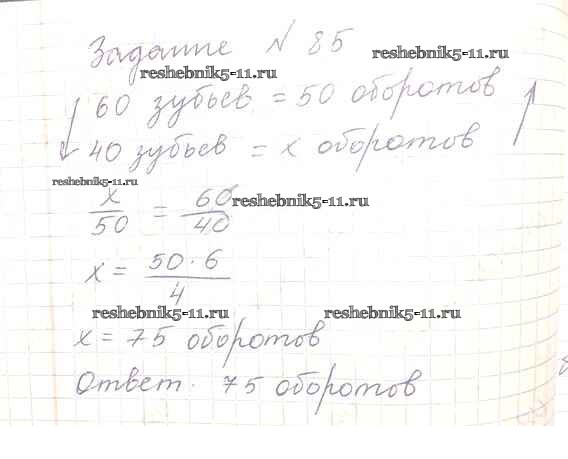 Задание № 85
reshebnik5-11.ru
reshebnik5-11.ru
↓ 60 зубьев = 50 оборотов ↑
40 зубьев = x оборотов
reshebnik5-11.ru
x/50 = 60/40
reshebnik5-11.ru
x = 50 · 6/4
reshebnik5-11.ru
reshebnik5-11.ru
x = 75 оборотов
Ответ. 75 оборотов